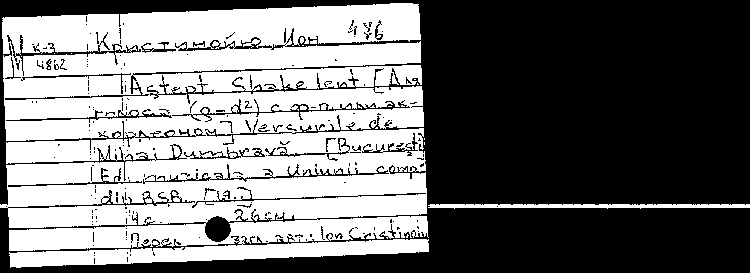 М к-3 Кристинойю, Ион 476
4862
Aştept. Shake lent [Для
голоса (g-d²) с ф-п. или ак-
кордеоном] Versurile de
Mihai Dumbravă. [Bucureşti]
Ed. muzicala a Uniunii comp.
din RSR, [19..]
4 с. 26 см.
Перед загл. авт.: Ion Cristinoiu